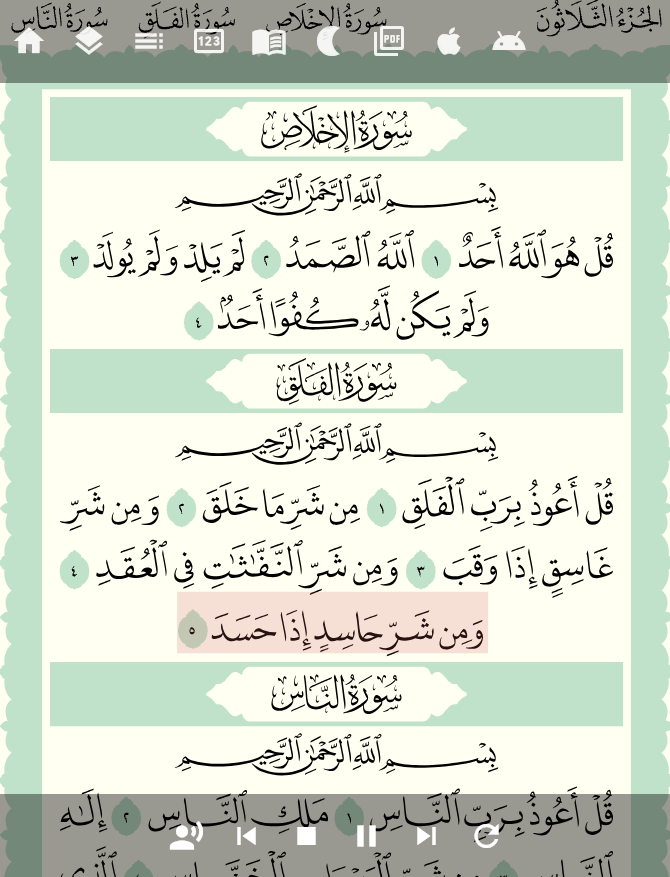 الجُزْءُ الثَّلَاثُونَ سُورَةُ الإِخْلَاصِ سُورَةُ الفَلَقِ سُورَةُ النَّاسِ
123 PDF
سُورَةُ الإِخْلَاصِ
بِسْمِ ٱللَّهِ ٱلرَّحْمَٰنِ ٱلرَّحِيمِ
قُلْ هُوَ ٱللَّهُ أَحَدٌ ١ ٱللَّهُ ٱلصَّمَدُ ٢ لَمْ يَلِدْ وَلَمْ يُولَدْ ٣
وَلَمْ يَكُن لَّهُۥ كُفُوًا أَحَدٌۢ ٤
سُورَةُ الفَلَقِ
بِسْمِ ٱللَّهِ ٱلرَّحْمَٰنِ ٱلرَّحِيمِ
قُلْ أَعُوذُ بِرَبِّ ٱلْفَلَقِ ١ مِن شَرِّ مَا خَلَقَ ٢ وَمِن شَرِّ
غَاسِقٍ إِذَا وَقَبَ ٣ وَمِن شَرِّ ٱلنَّفَّٰثَٰتِ فِى ٱلْعُقَدِ ٤
وَمِن شَرِّ حَاسِدٍ إِذَا حَسَدَ ٥
سُورَةُ النَّاسِ
بِسْمِ ٱللَّهِ ٱلرَّحْمَٰنِ ٱلرَّحِيمِ
قُلْ أَعُوذُ بِرَبِّ ٱلنَّاسِ ١ مَلِكِ ٱلنَّاسِ ٢ إِلَٰهِ